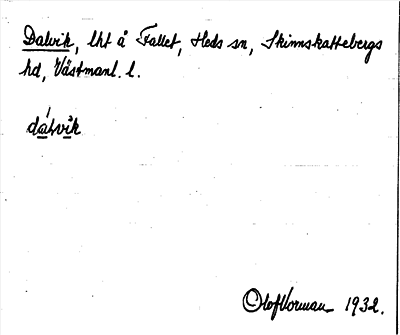 Dalvik, lht å Fallet, Heds sn, Skinnskattebergs
hd, Västmanl. l.
dalvik
Olof Norman 1932.